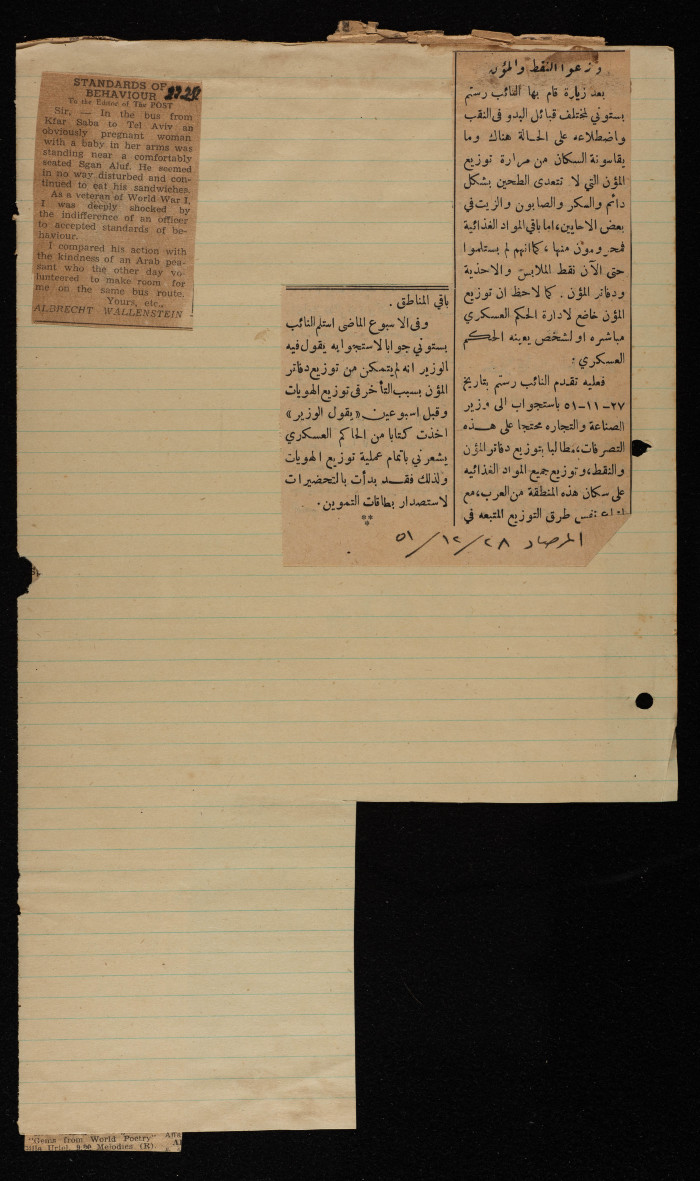 STANDARDS OF
BEHAVIOUR
To the Editor of The POST
Sir, — In the bus from
Kfar Saba to Tel Aviv an
obviously pregnant woman
with a baby in her arms was
standing near a comfortably
seated Sgan Aluf. He seemed
in no way disturbed and con-
tinued to eat his sandwiches.
As a veteran of World War I,
I was deeply shocked by
the indifference of an officer
to accepted standards of be-
haviour.
I compared his action with
the kindness of an Arab pea-
sant who the other day vo-
lunteered to make room for
me on the same bus route.
Yours, etc.,
ALBRECHT WALLENSTEIN
وزعوا النقط والمؤن
بعد زيارة قام بها النائب رستم
بستوني لمختلف قبائل البدو في النقب
واضطلاعه على الحالة هناك وما
يقاسونة السكان من مرارة توزيع
المؤن التي لا تتعدى الطحين بشكل
دائم والسكر والصابون والزيت في
بعض الاحايين، اما باقي المواد الغذائية
فمحرومون منها، كما انهم لم يستلموا
حتى الآن نقط الملابس والاحذية
ودفاتر المؤن. كما لاحظ ان توزيع
المؤن خاضع لادارة الحكم العسكري
مباشره او لشخص يعينه الحكم
العسكري.
فعليه تقدم النائب رستم بتاريخ
٢٧-١١-٥١ باستجواب الى وزير
الصناعة والتجاره محتجا على هذه
التصرفات، مطالبا بتوزيع دفاتر المؤن
والنقط، وتوزيع جميع المواد الغذائيه
على سكان هذه المنطقة من العرب، مع
نفس طرق التوزيع المتبعه في
باقي المناطق.
وفى الاسبوع الماضى استلم النائب
بستوني جوابا لاستجوابه يقول فيه
الوزير انه لم يتمكن من توزيع دفاتر
المؤن بسبب التأخر في توزيع الهويات
وقبل اسبوعين «يقول الوزير»
اخذت كتابا من الحاكم العسكري
يشعرني باتمام عملية توزيع الهويات
ولذلك فقد بدأت بالتحضيرات
لاستصدار بطاقات التموين.
**
المرصاد ٢٨/١٢/٥١
"Gems from World Poetry"
Uriel. 9.30 Melodies (R).